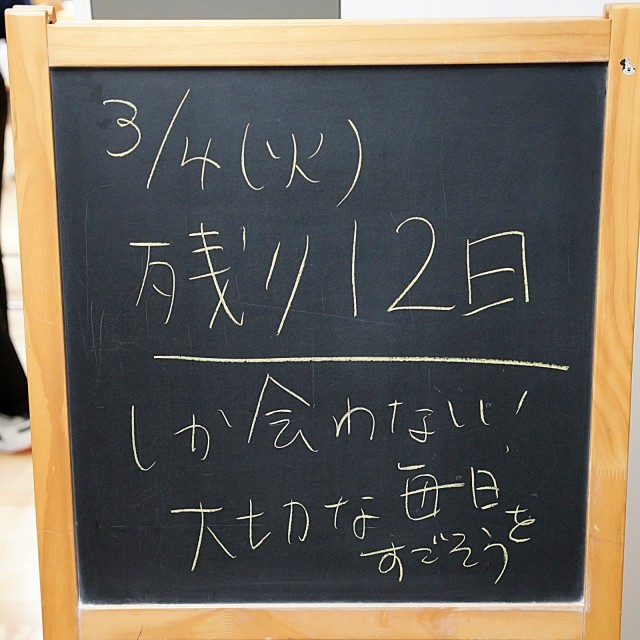 3/4(火)
残り12日
しか会わない!
大切な毎日を
すごそう